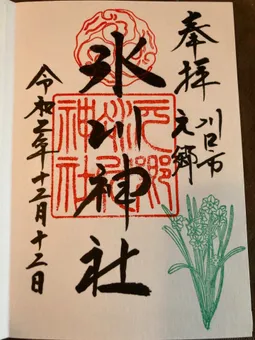 奉拝
川口市
元郷
氷川神社
元郷
氷川
神社
令和 年十二月十二日